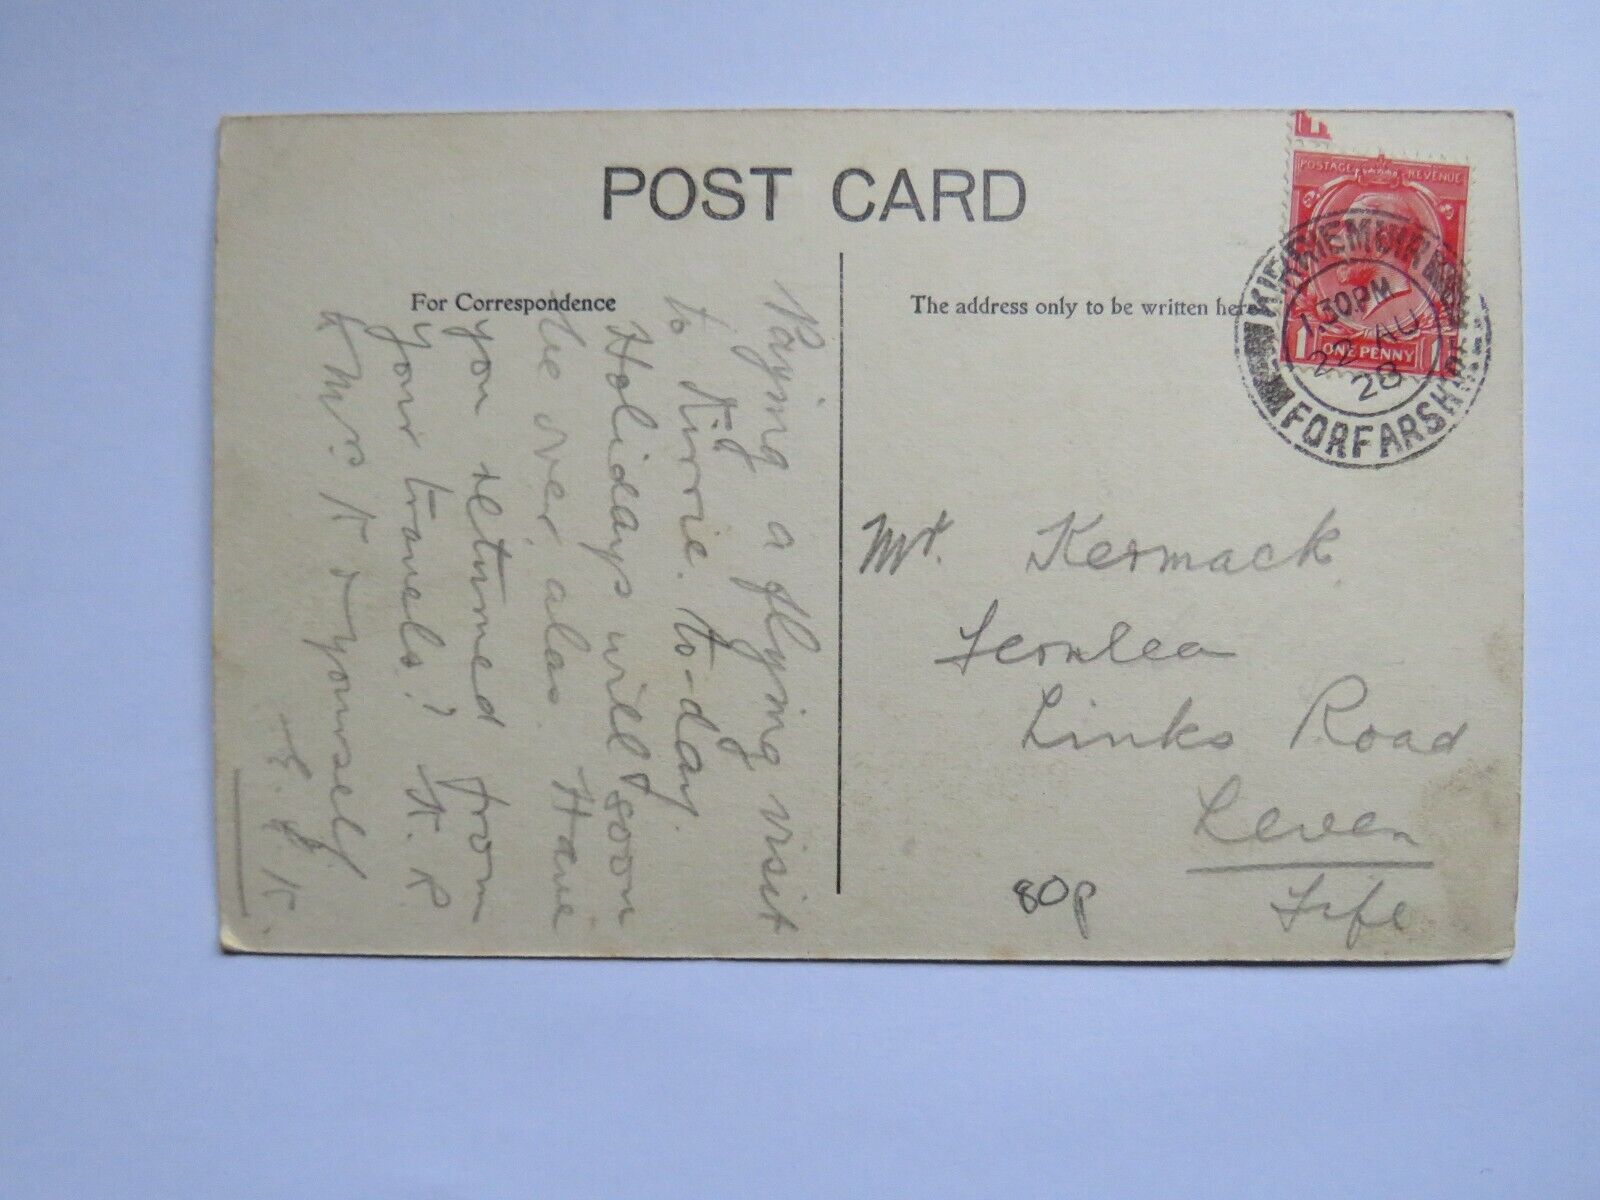 POST CARD
For Correspondence
The address only to be written here
POSTAGE REVENUE
1 ONE PENNY 1
KIRRIEMUIR
1.30PM
22 AU
28
FORFARSHIRE
Paying a flying visit
to Kirrie. to-day.
Holidays will soon
be over, alas. Have
you returned from
your travels? K. R
& Mrs. K & yourself.
K
Mr. Kermack
Fernlea
Links Road
Leven
Fife.
80p